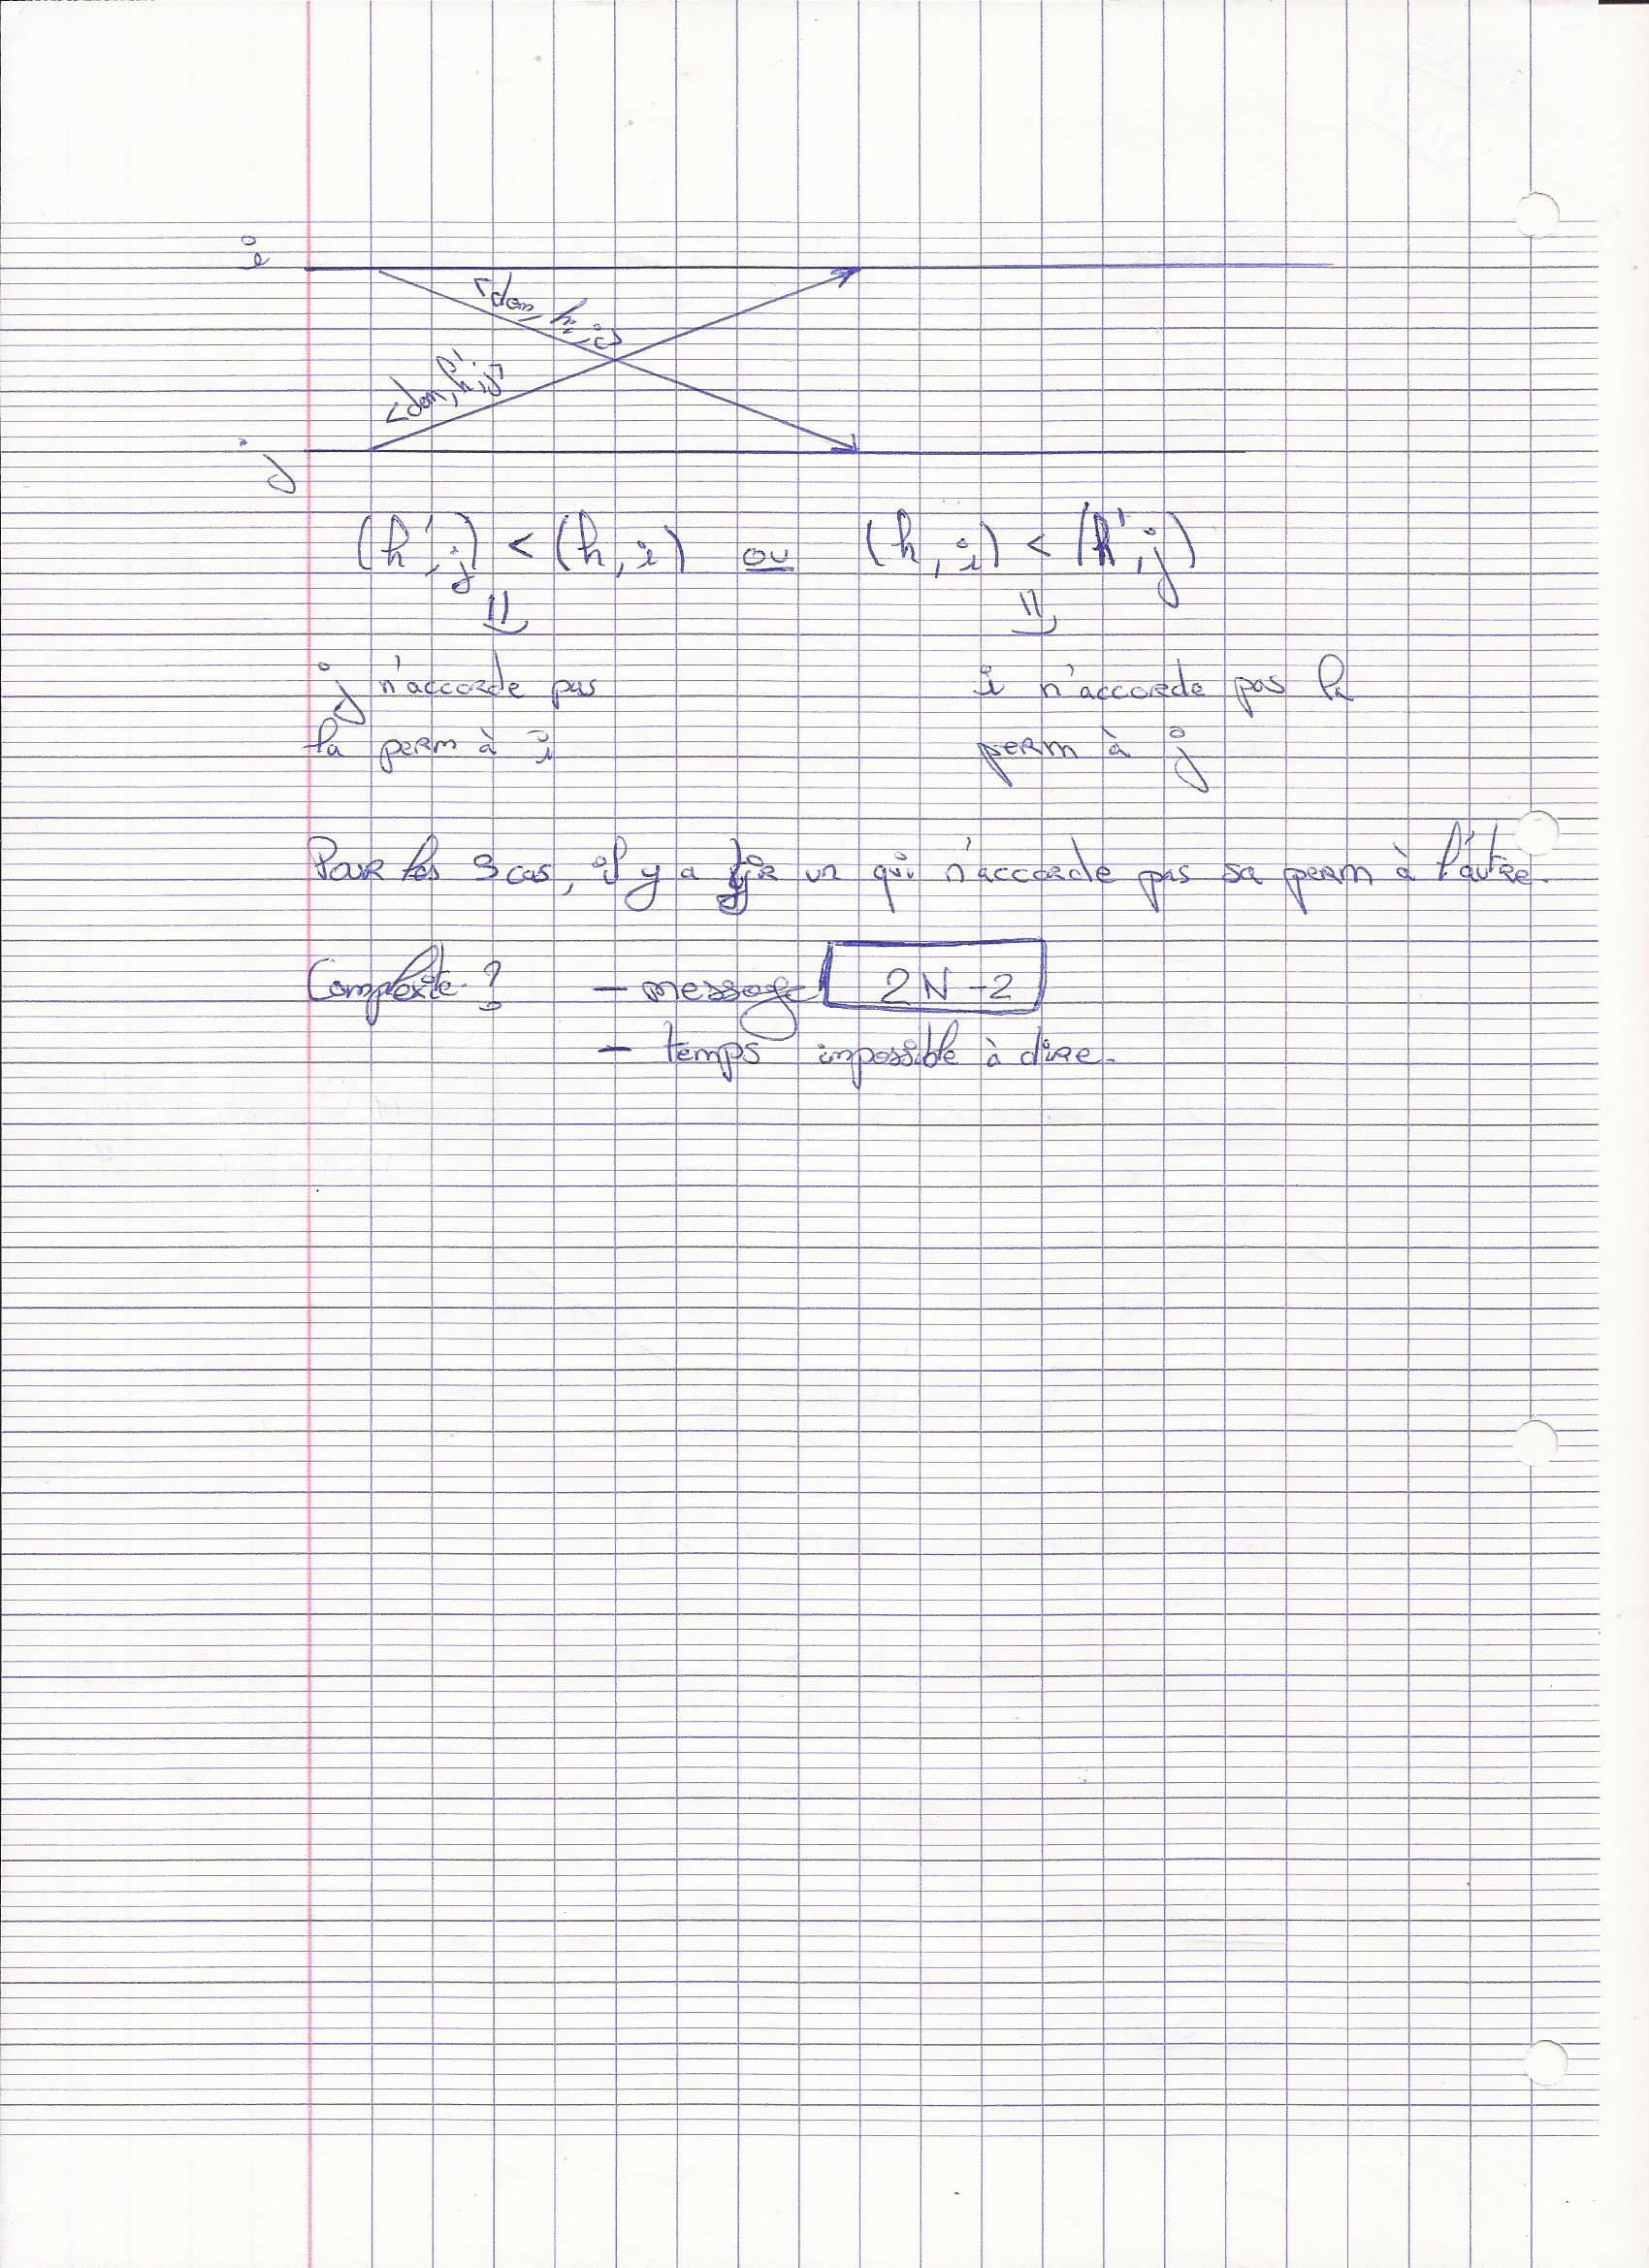 i
<dem, h, i>
<dem, h', j>
j
(h', j) < (h, i) ou (h, i) < (h', j)
j n'accorde pas i n'accorde pas la
la perm à i perm à j
Pour les 3 cas, il y a tjr un qui n'accorde pas sa perm à l'autre.
Complexité ? - message 2N-2
- temps impossible à dire.